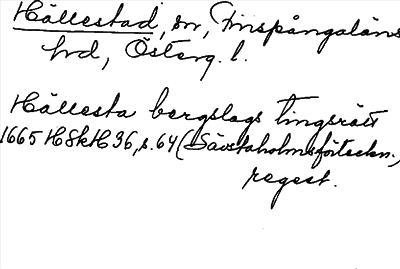 Hällestad, sn, Finspångaläns
hrd, Österg. l.
Hällesta bergslags tingsrätt
1665 HSkH 36, s. 64 (Sävstaholmsförteckn.)
regest.